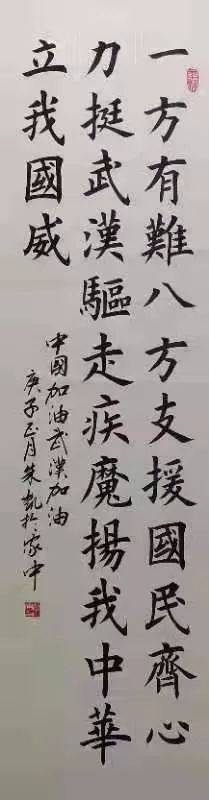 一方有難八方支援國民齊心
力挺武漢驅走疾魔揚我中華
立我國威
中國加油武漢加油
庚子正月朱凱於家中